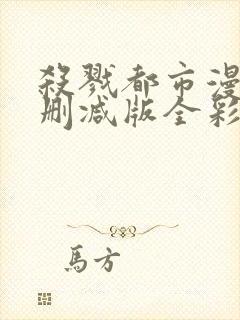 殺戮都市漫
刪減版全彩
馬方